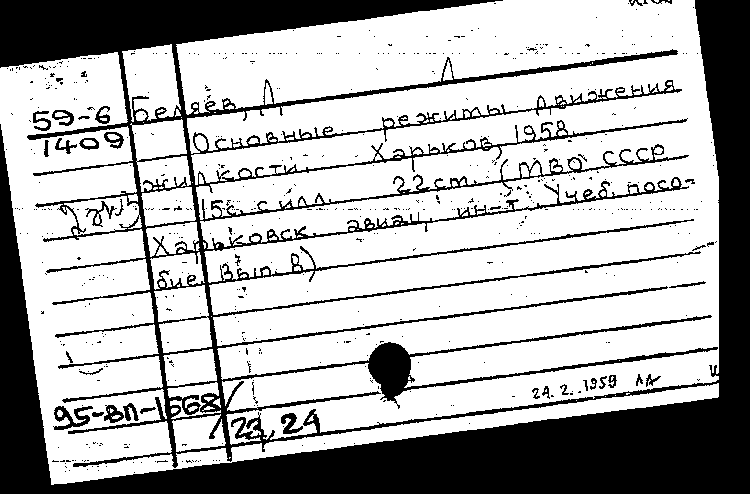 59-6 Беляев, Л. Л
1409 Основные режимы движения
жидкости. Харьков, 1958.
2 экз 15с. с илл. 22 см. (МВО СССР
Харьковск. авиац. ин-т. Учеб. посо-
бие. Вып. 8)
24.2.1959
95-вп-1668/
23, 24